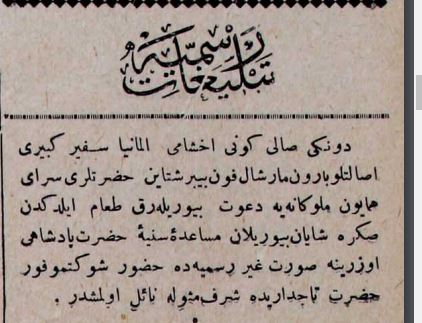 تبليغات رسميه
دونكى صالى كونى اخشامى المانيا سفير كبيرى
اصالتلو بارون مارشال فون بيبرشتاين حضرتلرى سراى
همايون ملوكانه‌يه دعوت بيوريله‌رق طعام ايلدكدن
صكره شايان بيوريلان مساعدۀ سنيۀ حضرت پادشاهى
اوزرينه صورت غير رسميه‌ده حضور شوكتموفور
حضرت تاجداريده شرف مثوله نائل اولمشدر .